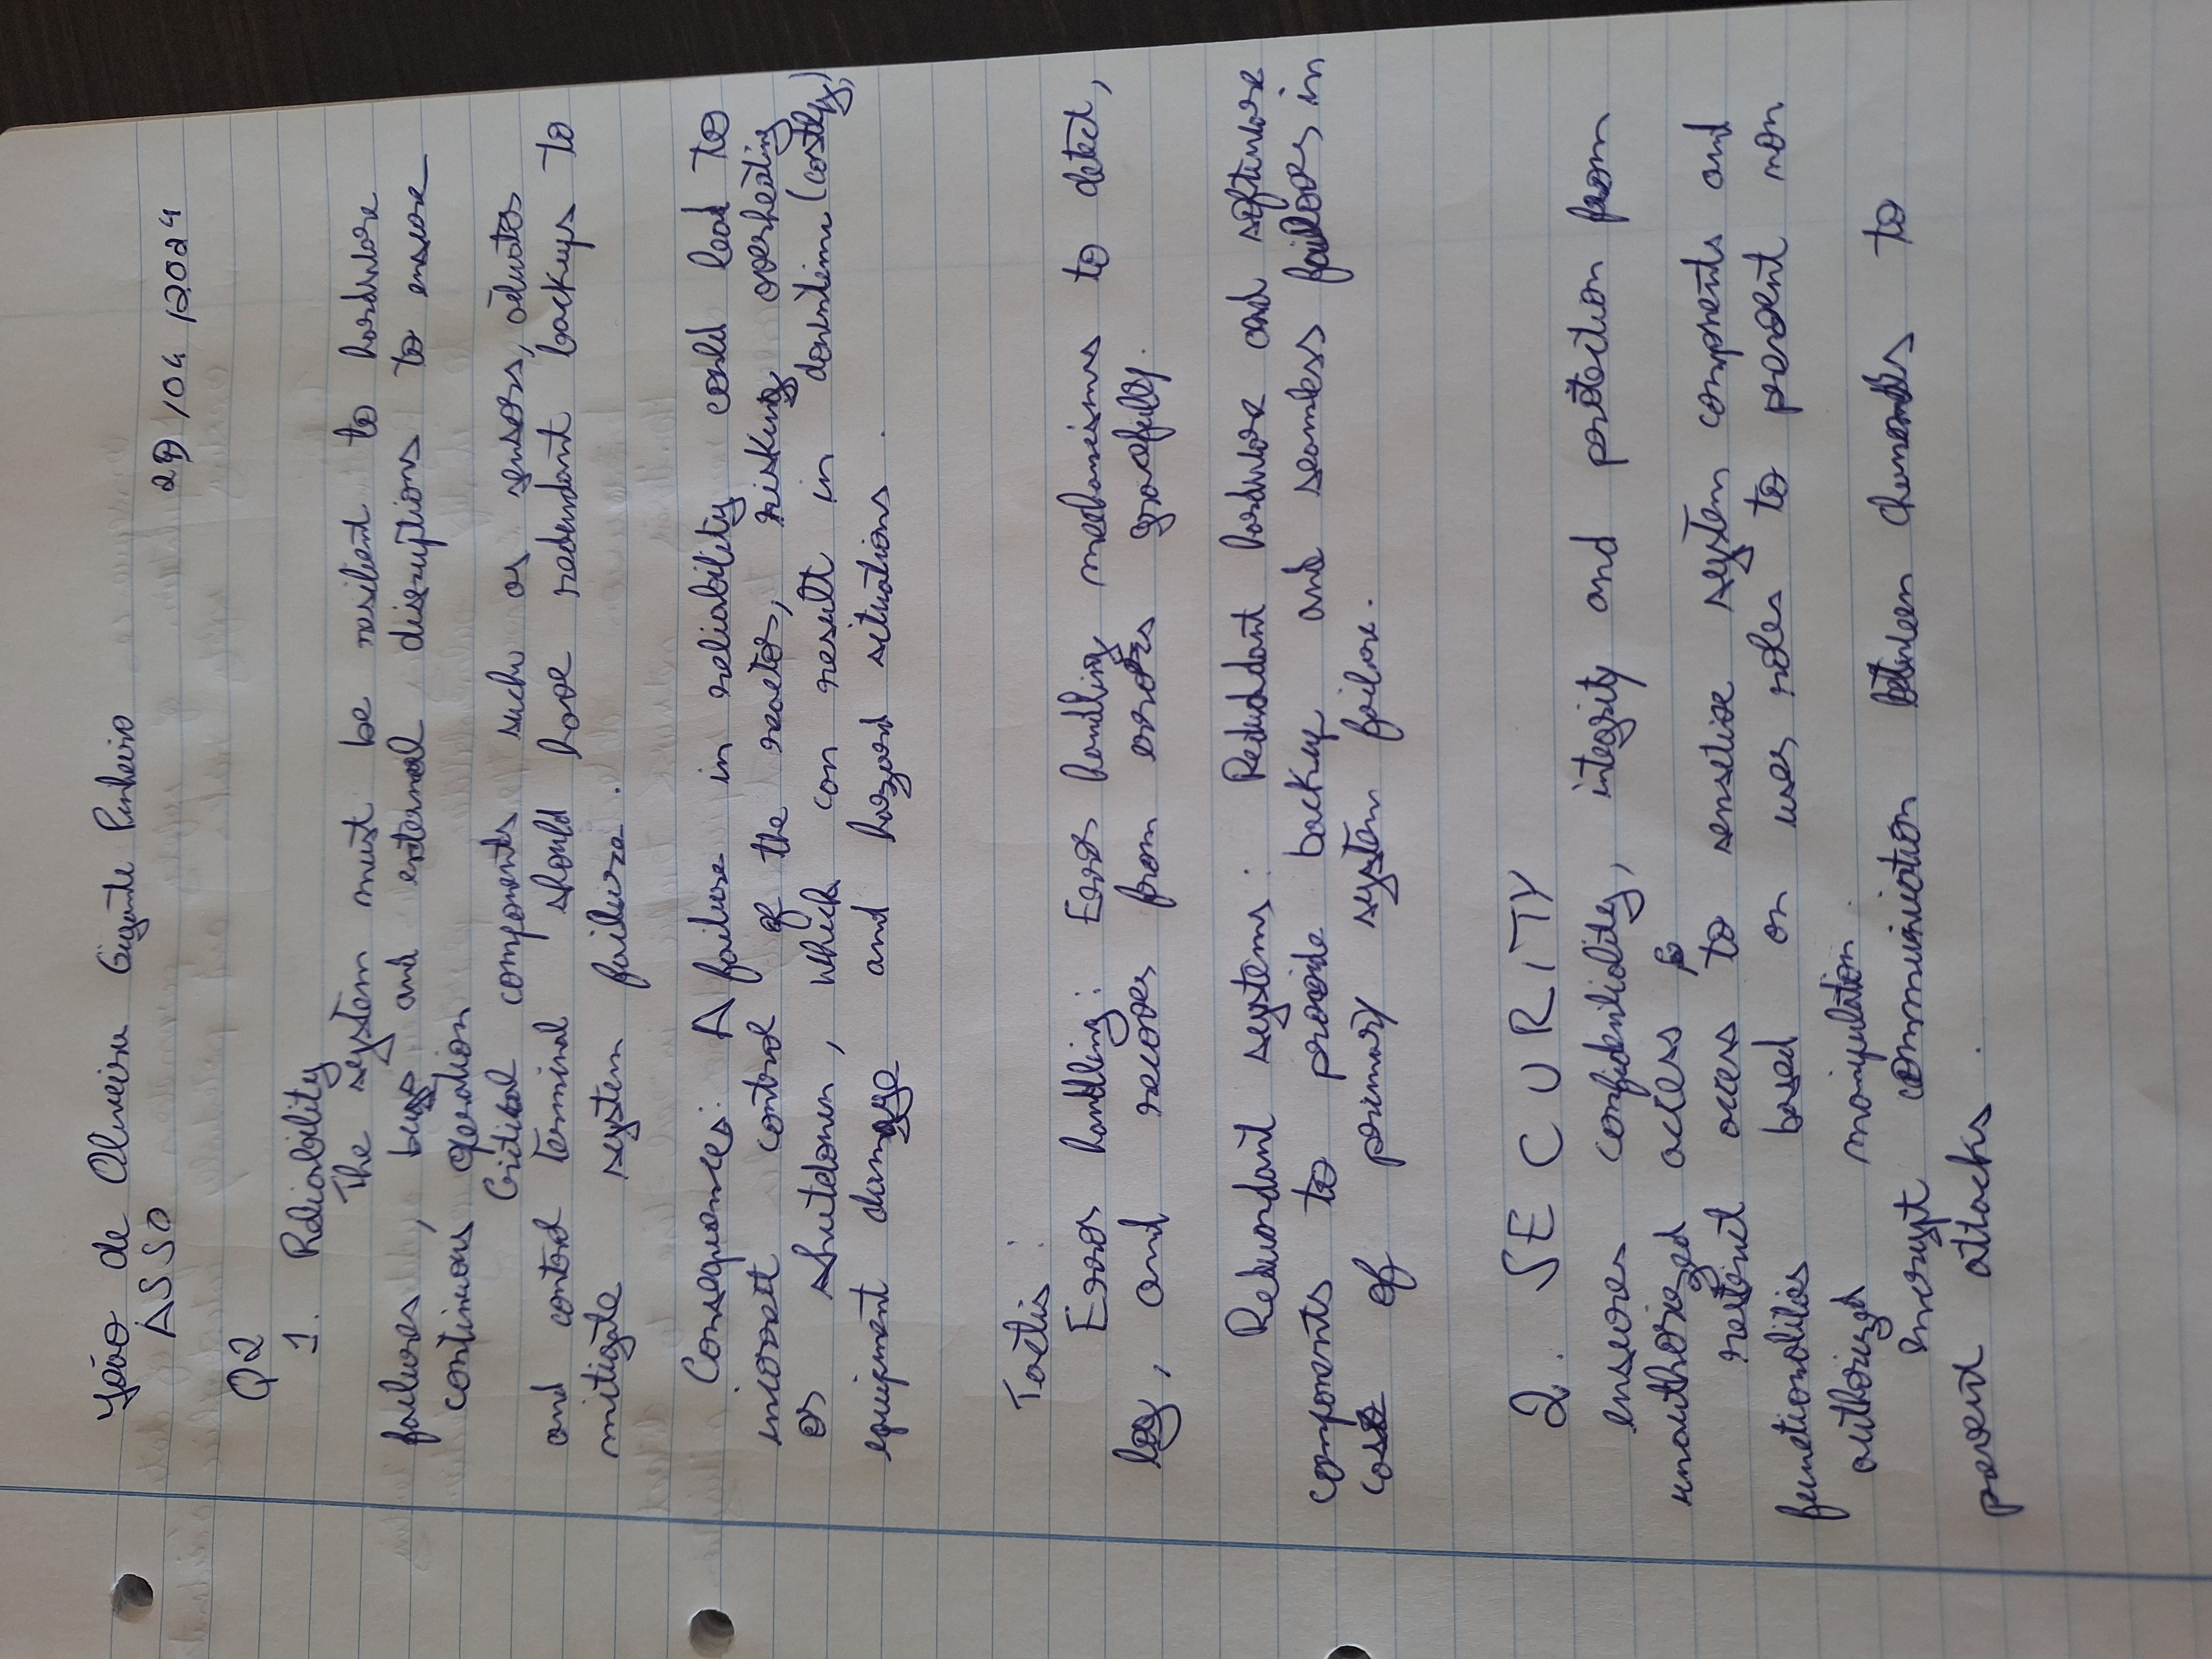 João de Oliveira Gigante Pinheiro
ASSO 29/04/2024
Q2
1. Reliability
The system must be resilient to hardware
failures, bugs and external disruptions to ensure
continuous operation
Critical components such as sensors,
and control terminal should have redundant backups to
mitigate system failure.
Consequences: A failure in reliability could lead to
incorrect control of the reactor, risking overheating
or shutdown, which can result in downtime (costly),
equipment damage and hazard situations.
Tactis:
Error handling: Error handling mechanisms to detect,
log, and recover from errors gracefully.
Redundant systems: Redundant hardware and software
components to provide backup and seamless failover in
case of primary system failure.
2. SECURITY
ensures confidentiality, integrity and protection from
unauthorized access to
restrict access to sensetive system components and
functionalities based on user roles to prevent non
authorized manipulation.
encrypt communication between to
prevent attacks.